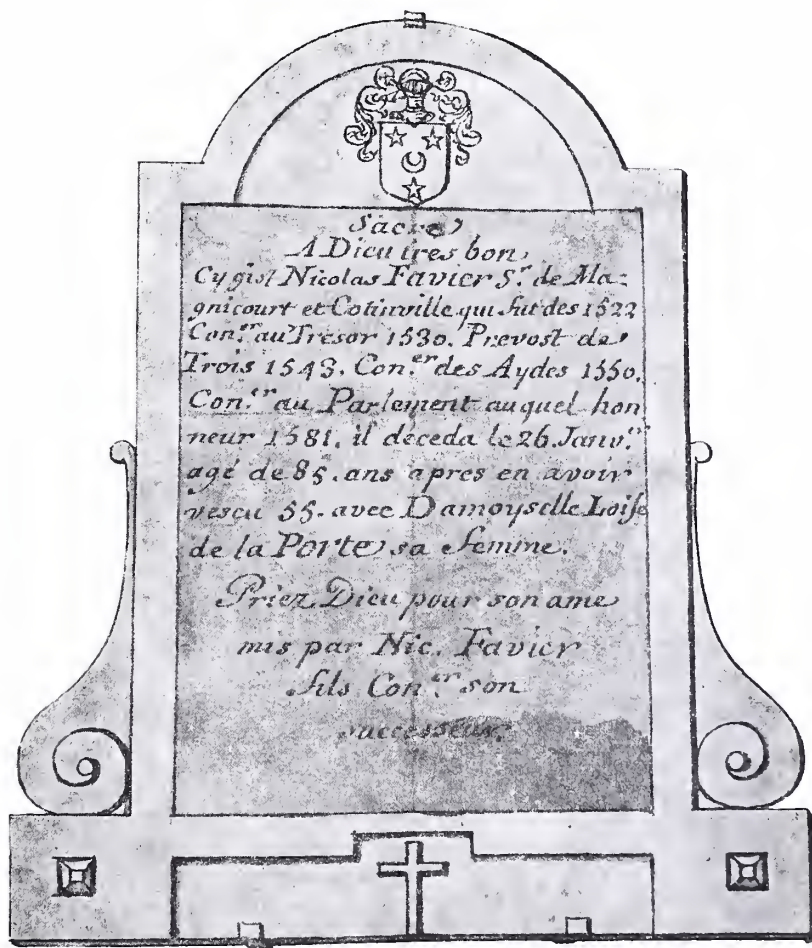 Sacré
A Dieu tres bon
Cy gist Nicolas Favier Sr. de Ma=
gnicourt et Cotinville qui fut des 1522
Con.er au Tresor 1530. Prevost de
Trois 1543. Con.er des Aydes 1550.
Con.er au Parlement auquel hon
neur 1581. il deceda le 26. Janv.er
agé de 85. ans apres en avoir
vescu 55. avec Damoyselle Loise
de la Porte sa femme.
Priez Dieu pour son ame
mis par Nic. Favier
fils Con.er son
successeur.